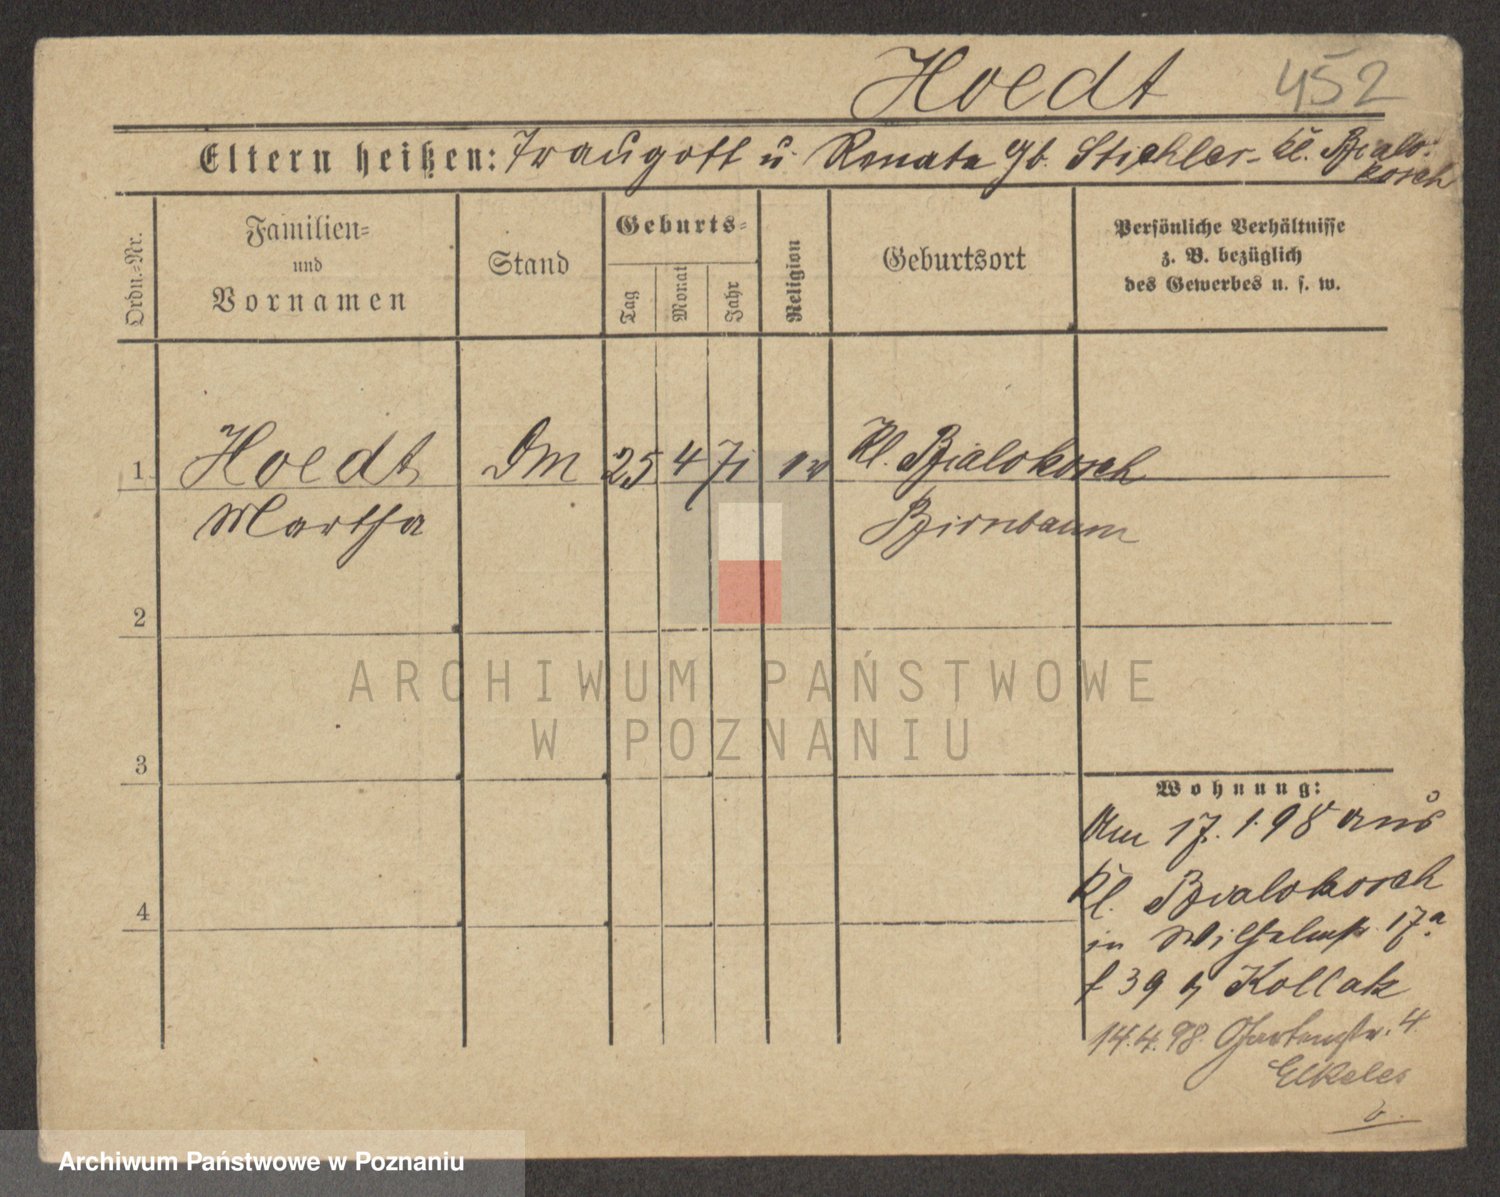 Hoedt 452
Eltern heißen: Traugott u Renata gb. Stichler - Kl. Bialo-
kosch
Ordn.=Nr.
Familien=
und
Vornamen
Stand
Geburts=
Tag
Monat
Jahr
Religion
Geburtsort
Persönliche Verhältnisse
z. B. bezüglich
des Gewerbes u. s. w.
1 Hoedt Dm 25 4 71 ev Kl. Bialokosch
Martha Birnbaum
2
ARCHIWUM PAŃSTWOWE
W POZNANIU
3
Wohnung:
Am 17. 1. 98 aus
Kl. Bialokosch
4
in Wilhelmstr. 17a
f 39 Kollak
14.4.98. Gartenstr. 4.
Elkeles
Archiwum Państwowe w Poznaniu